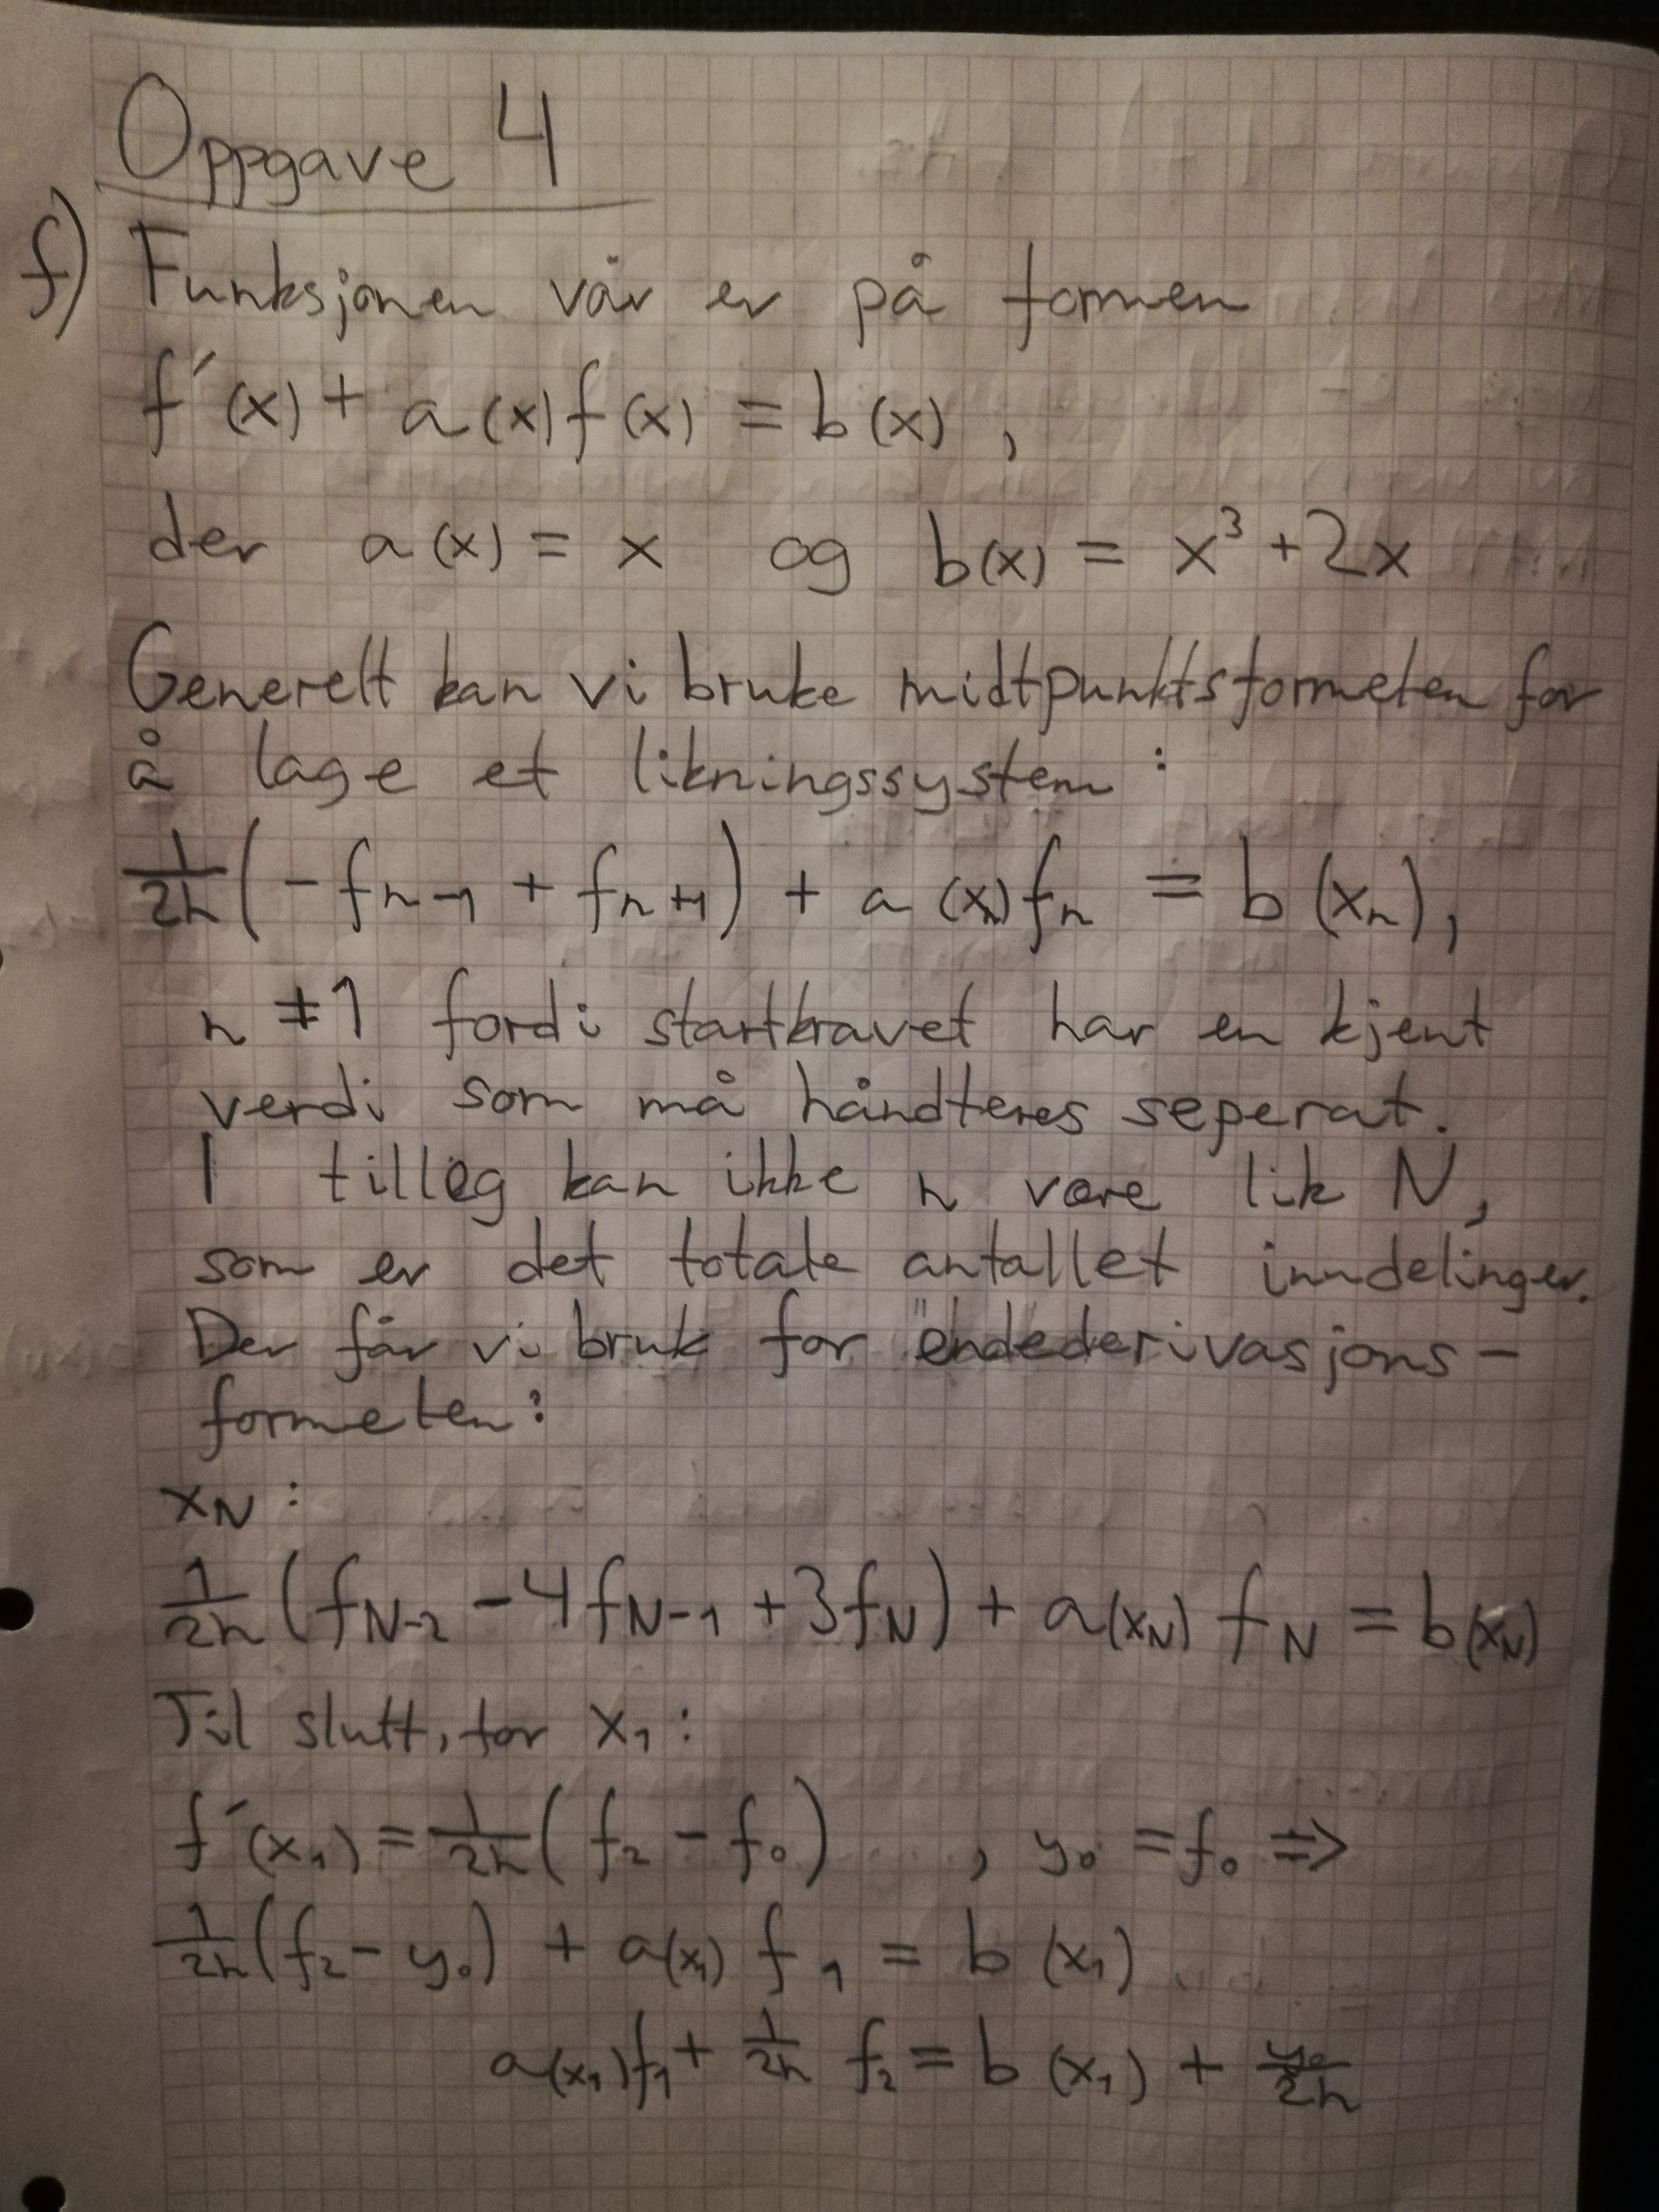 Oppgave 4
f) Funksjonen vår er på formen
f´(x) + a(x)f(x) = b(x) ,
der a(x) = x og b(x) = x³ + 2x
Generelt kan vi bruke midtpunktsformelen for
å lage et likningssystem :
1/2h (-fn-1 + fn+1) + a(xn)fn = b(xn),
n ≠ 1 fordi startkravet har en kjent
verdi som må håndteres seperat.
I tilleg kan ikke n være lik N,
som er det totale antallet inndelinger.
Der får vi bruk for "endederivasjons-
formelen:
xN :
1/2h (fN-2 - 4fN-1 + 3fN) + a(xN) fN = b(xN)
Til slutt, for x1 :
f´(x1) = 1/2h (f2 - f0) , y0 = f0 ⇒
1/2h (f2 - y0) + a(x1) f1 = b(x1)
a(x1)f1 + 1/2h f2 = b(x1) + y0/2h